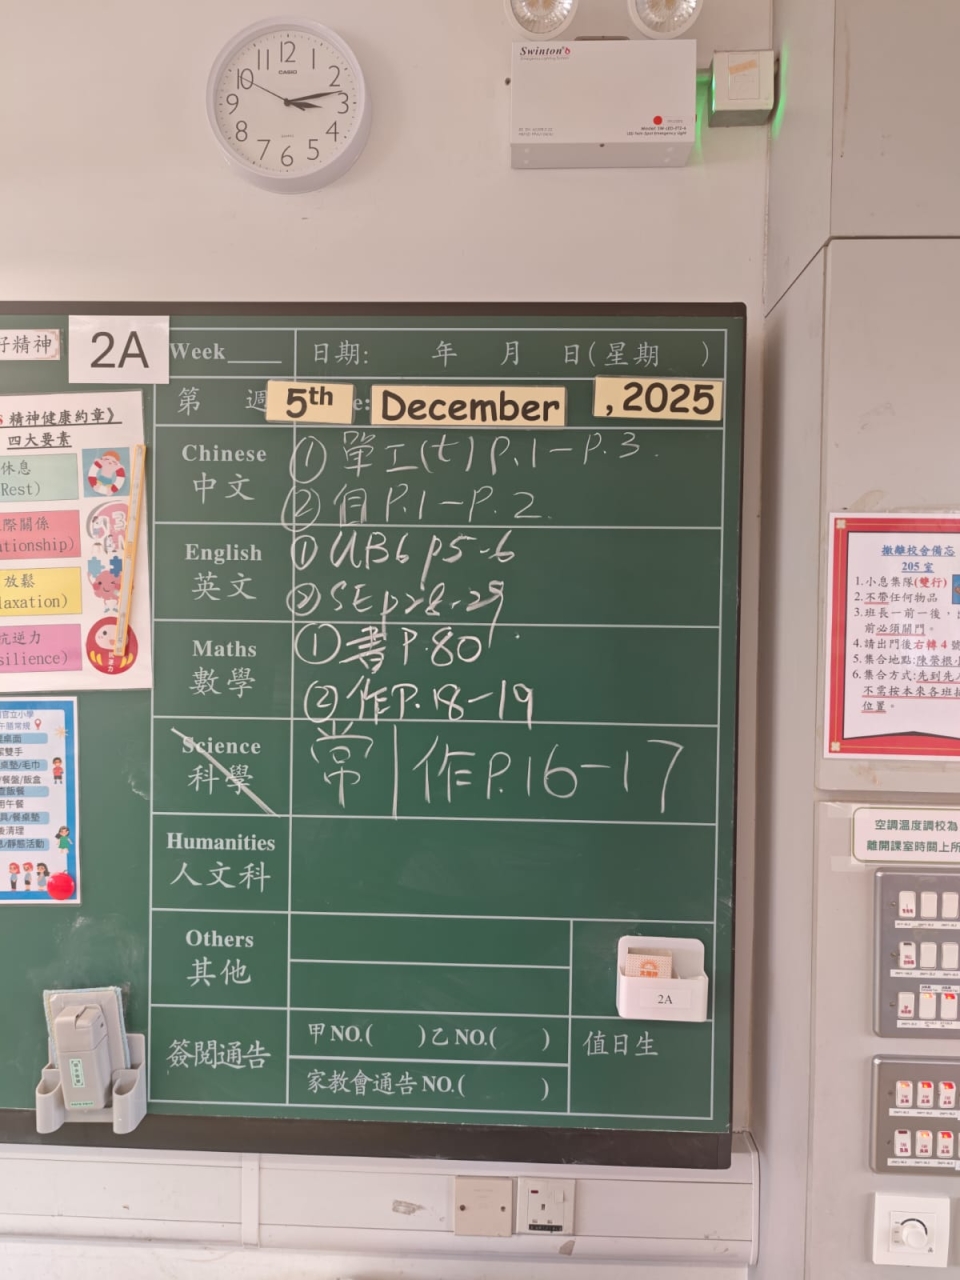 12
11
10
9
8
7
6
5
4
3
2
CASIO
Swinton
2A
好精神
Week____
日期: 年 月 日(星期 )
第 週
5th December , 2025
精神健康約章》
四大要素
休息
Rest)
際關係
ationship)
放鬆
laxation)
抗逆力
silience)
Chinese
中文
① 單工(七) P.1-P.3.
② 自 P.1-P.2
English
英文
① UB6 p5-6
② SE p28-29
Maths
數學
① 書 P.80
② 作 P.18-19
Science
科學
常 | 作 P.16-17
Humanities
人文科
Others
其他
2A
簽閱通告
甲 NO.( ) 乙 NO.( )
家教會通告 NO.( )
值日生
撤離校舍備忘
205 室
1. 小息集隊(雙行)
2. 不帶任何物品
3. 班長一前一後,
前必須關門。
4. 請出門後右轉 4 號
5. 集合地點:陳榮根小
6. 集合方式:先到先
不需按本來各班
位置。
空調溫度調校為
離開課室時關上所